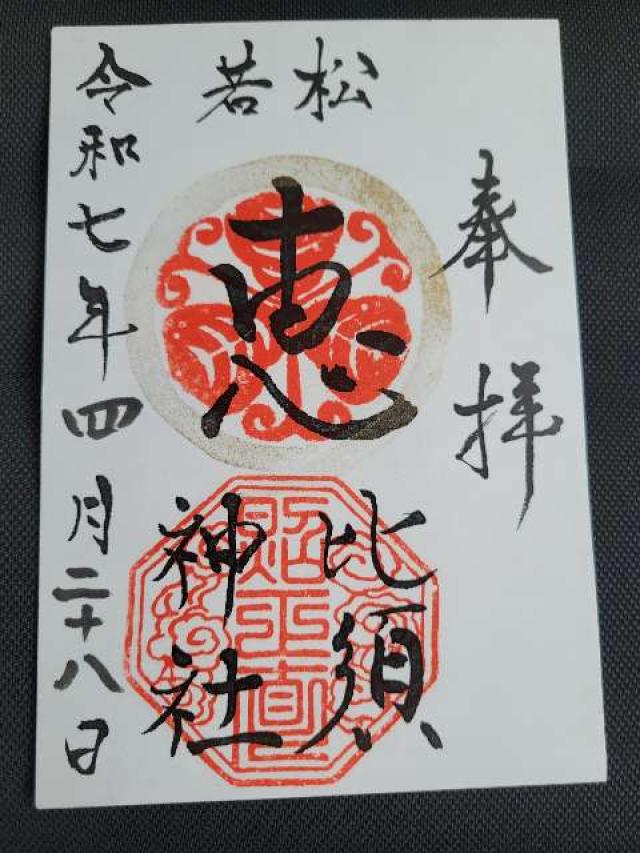 奉拝
若松
恵
比須
神社
令和七年四月二十八日